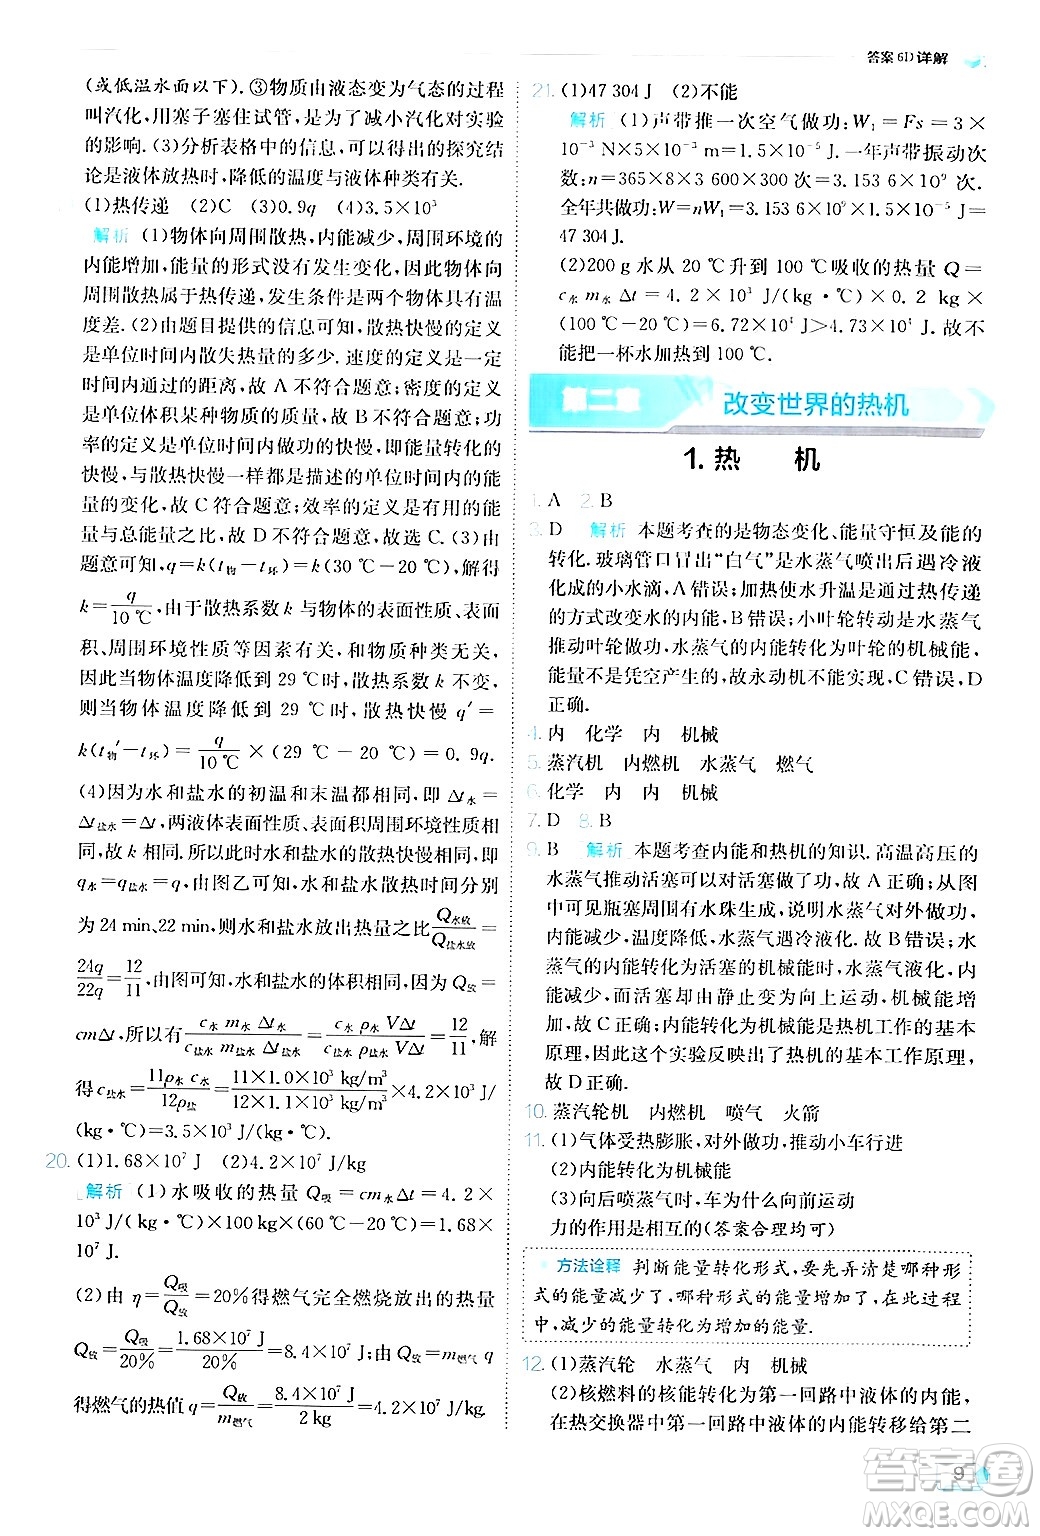 答案6D详解
(或低温水面以下).③物质由液态变为气态的过程
叫汽化,用塞子塞住试管,是为了减小汽化对实验
的影响.(3)分析表格中的信息,可以得出的探究结
论是液体放热时,降低的温度与液体种类有关.
(1)热传递 (2)C (3)0.9q (4)3.5×10³
解析 (1)物体向周围散热,内能减少,周围环境的
内能增加,能量的形式没有发生变化,因此物体向
周围散热属于热传递,发生条件是两个物体具有温
度差.(2)由题目提供的信息可知,散热快慢的定义
是单位时间内散失热量的多少.速度的定义是一定
时间内通过的路程,故 A 不符合题意;密度的定义是
单位体积某种物质的质量,故 B 不符合题意;功
率的定义是单位时间内做功的快慢,即能量转化的
快慢,与散热快慢一样都是描述的单位时间内的能
量的变化,故 C 符合题意;效率的定义是有用的能
量与总能量之比,故 D 不符合题意.(3)由
题干可知,q=k(t物-t环)=k(30 ℃-20 ℃),解得
k=q/10 ℃,由于散热系数 k 与物体的表面性质、表面
积、周围环境性质等因素有关,与温度无关,因此当
物体温度降低到 29 ℃时,散热系数 k 不变,
则当物体温度降低到 29 ℃时,散热快慢 q′=
k(t物′-t环)=q/10 ℃×(29 ℃-20 ℃)=0.9q.
(4)因为水和盐水的初温和末温都相同,即 Δt水=
Δt盐水=Δt,两液体表面性质、表面积周围环境性质相
同,故 k 相同.所以此时水和盐水的散热快慢相同,即
q水=q盐水=q.由图乙可知,水和盐水散热时间分别
为 24 min、22 min,则水和盐水放出热量之比Q水放/Q盐水放=
24q/22q=12/11,由图可知,水和盐水的体积相同,由Q放=
cmΔt,所以有c水m水Δt水/c盐水m盐水Δt盐水=c水ρ水VΔt/c盐水ρ盐水VΔt=12/11,解
得c盐水=11ρ水c水/12ρ盐=11×1.0×10³ kg/m³/12×1.1×10³ kg/m³×4.2×10³ J/
(kg·℃)=3.5×10³ J/(kg·℃).
20.(1)1.68×10⁷ J (2)4.2×10⁷ J/kg
解析 (1)水吸收的热量 Q吸=cm水Δt=4.2×
10³ J/(kg·℃)×100 kg×(60 ℃-20 ℃)=1.68×
10⁷ J.
(2)由 η=Q吸/Q放=20%得燃气完全燃烧放出的热量
Q放=Q吸/20%=1.68×10⁷ J/20%=8.4×10⁷ J,由Q放=m燃气 q
得燃气的热值 q=Q放/m燃气=8.4×10⁷ J/2 kg=4.2×10⁷ J/kg.
21.(1)47 304 J (2)不能
解析 (1)声带推一次空气做功:W₁=Fs=3×
10⁻³ N×5×10⁻³ m=1.5×10⁻⁵ J.一年声带振动次
数:n=365×8×3 600×300 次=3.153 6×10⁹ 次.
全年共做功:W=nW₁=3.153 6×10⁹×1.5×10⁻⁵ J=
47 304 J.
(2)200 g 水从 20 ℃升到 100 ℃吸收的热量 Q=
c水m水Δt=4.2×10³ J/(kg·℃)×0.2 kg×
(100 ℃-20 ℃)=6.72×10⁴ J>4.73×10⁴ J.故不
能把一杯水加热到 100 ℃.
第二章 改变世界的热机
1.热 机
1.A 2.B
3.D 解析 本题考查的是物态变化、能量守恒及能的
转化.玻璃管口冒出“白气”是水蒸气喷出后遇冷液
化成的小水滴,A 错误;加热使水升温是通过热传递
的方式改变水的内能,B 错误;小叶轮转动是水蒸气
推动叶轮做功,水蒸气的内能转化为叶轮的机械能,
能量不是凭空产生的,故永动机不能实现,C 错误,D
正确.
4.内 化学 内 机械
5.蒸汽机 内燃机 水蒸气 燃气
6.化学 内 内 机械
7.D 8.B
9.B 解析 本题考查内能和热机的知识.高温高压的
水蒸气推动活塞可以对活塞做了功,故 A 正确;从图
中可见瓶塞周围有水珠生成,说明水蒸气对外做功,
内能减少,温度降低,水蒸气遇冷液化.故 B 错误;水
蒸气的内能转化为活塞的机械能时,水蒸气液化,内
能减少,而活塞却由静止变为向上运动,机械能增
加,故 C 正确;内能转化为机械能是热机工作的基本
原理,因此这个实验反映出了热机的基本工作原理,
故 D 正确.
10.蒸汽轮机 内燃机 喷气 火箭
11.(1)气体受热膨胀,对外做功,推动小车行进
(2)内能转化为机械能
(3)向后喷蒸气时,车为什么向前运动
力的作用是相互的(答案合理均可)
方法诠释 判断能量转化形式,要先弄清楚哪种形
式的能量减少了,哪种形式的能量增加了,在此过程
中,减少的能量转化为增加的能量.
12.(1)蒸汽轮 水蒸气 内 机械
(2)核燃料的核能转化为第一回路中液体的内能,
在热交换器中第一回路中液体的内能转移给第二
9
答案圈
MXQE.COM